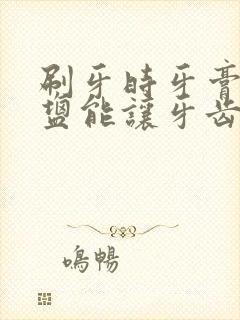 刷牙時牙膏
鹽能讓牙齒
鳴暢